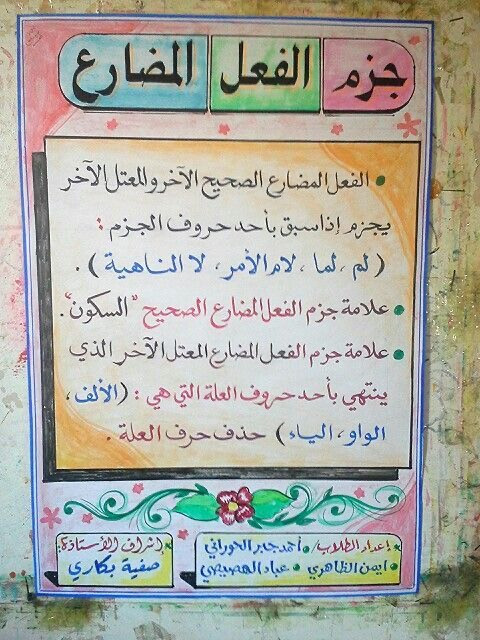 جزم الفعل المضارع
• الفعل المضارع الصحيح الآخر والمعتل الآخر
يجزم إذا سبق بأحد حروف الجزم :
( لم ، لما ، لام الأمر ، لا الناهية ) .
• علامة جزم الفعل المضارع الصحيح "السكون" .
• علامة جزم الفعل المضارع المعتل الآخر الذي
ينتهي بأحد حروف العلة التي هي : ( الألف ،
الواو ، الياء ) حذف حرف العلة .
إعداد الطلاب / • أحمد جبر الحوراني
• أيمن الظاهري • عباد الهصيصي
إشراف الأستاذة :
صفية بكاري